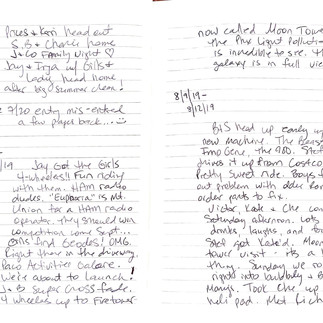 Prues & Ken head out
S.B & Chance home
J & Co Family Night ♡
Jay & Irya w/ Girls &
Lady head home
after big summer clean!
7/20 entry mis-entered
a few pages back...
/19 Jay Got the Girls
4-wheelers!! Fun riding
with them. HAM radio
dudes. "Euphoria" is Mt.
Union for a HAM radio
operator. They should win
competition come Sept...
Girls find Geodes! OMG.
Right there in the driveway.
Paco Activities Galore.
We're about to launch!
J & B Super Cross fade.
4 wheels up to Firetower
now called Moon Tower
the Phx Light Pollution
is incredible to see. th
galaxy is in full vie
8/9/19-
8/12/19
BHS head up early in
new machine. The Beast
Imo Gene, the 900. Stef
drives it up from Costco
Pretty Sweet ride. Boys f
out problem with older Ran
order parts to fix.
Victor, Kate & Che com
Saturday afternoon. Lots
drinks, laughs, and fo
Stef got Kate'd. Moon
tower visit - its a
thing. Sunday we ro
ripped into & B
Mary's. Took Che up
heli pad. Met